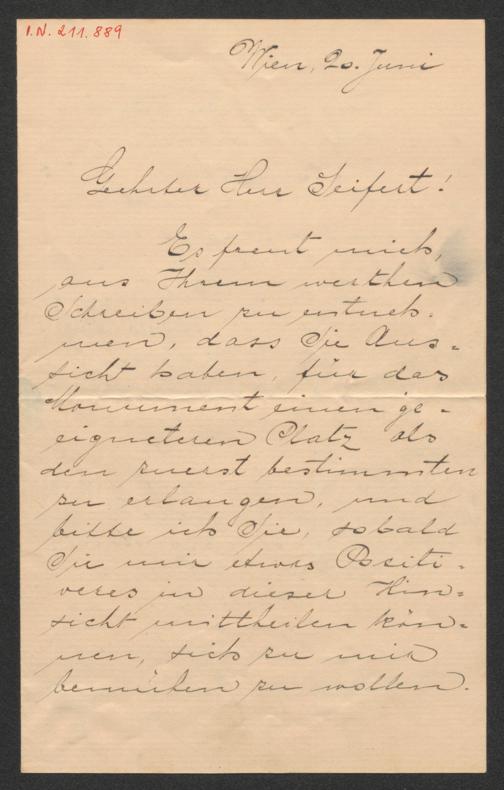 I.N. 211.889
Wien, 20. Juni
Geehrter Herr Seifert!
Es freut mich,
aus Ihrem werthen
Schreiben zu entneh-
men, dass Sie Aus-
sicht haben, für das
Monument einen ge-
eigneteren Platz als
den zuerst bestimmten
zu erlangen, und
bitte ich Sie, sobald
Sie mir etwas Positi-
veres in dieser Hin-
sicht mittheilen kön-
nen, sich zu mir
bemühen zu wollen.